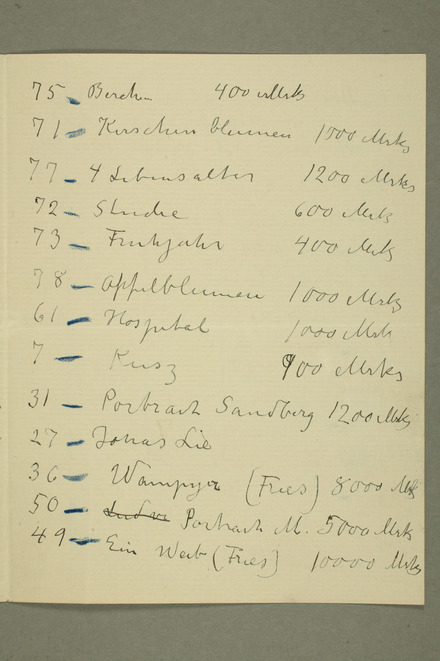 75 - Birchen 400 Mrks
71 - Kirschenblumen 1500 Mrks
77 - 4 Lebensalter 1200 Mrks
72 - Studie 600 Mrks
73 - Fruhjahr 400 Mrks
78 - Apfelblumen 1000 Mrks
61 - Hospital 1000 Mrk
7 - Kusz 900 Mrks
31 - Portrait Sandberg 1200 Mrks
27 - Jonas Lie
36 - Wampyr (Fries) 8000 Mrk
50 - Portrait M. 5000 Mrk
49 - Ein Weib (Fries) 10000 Mrks